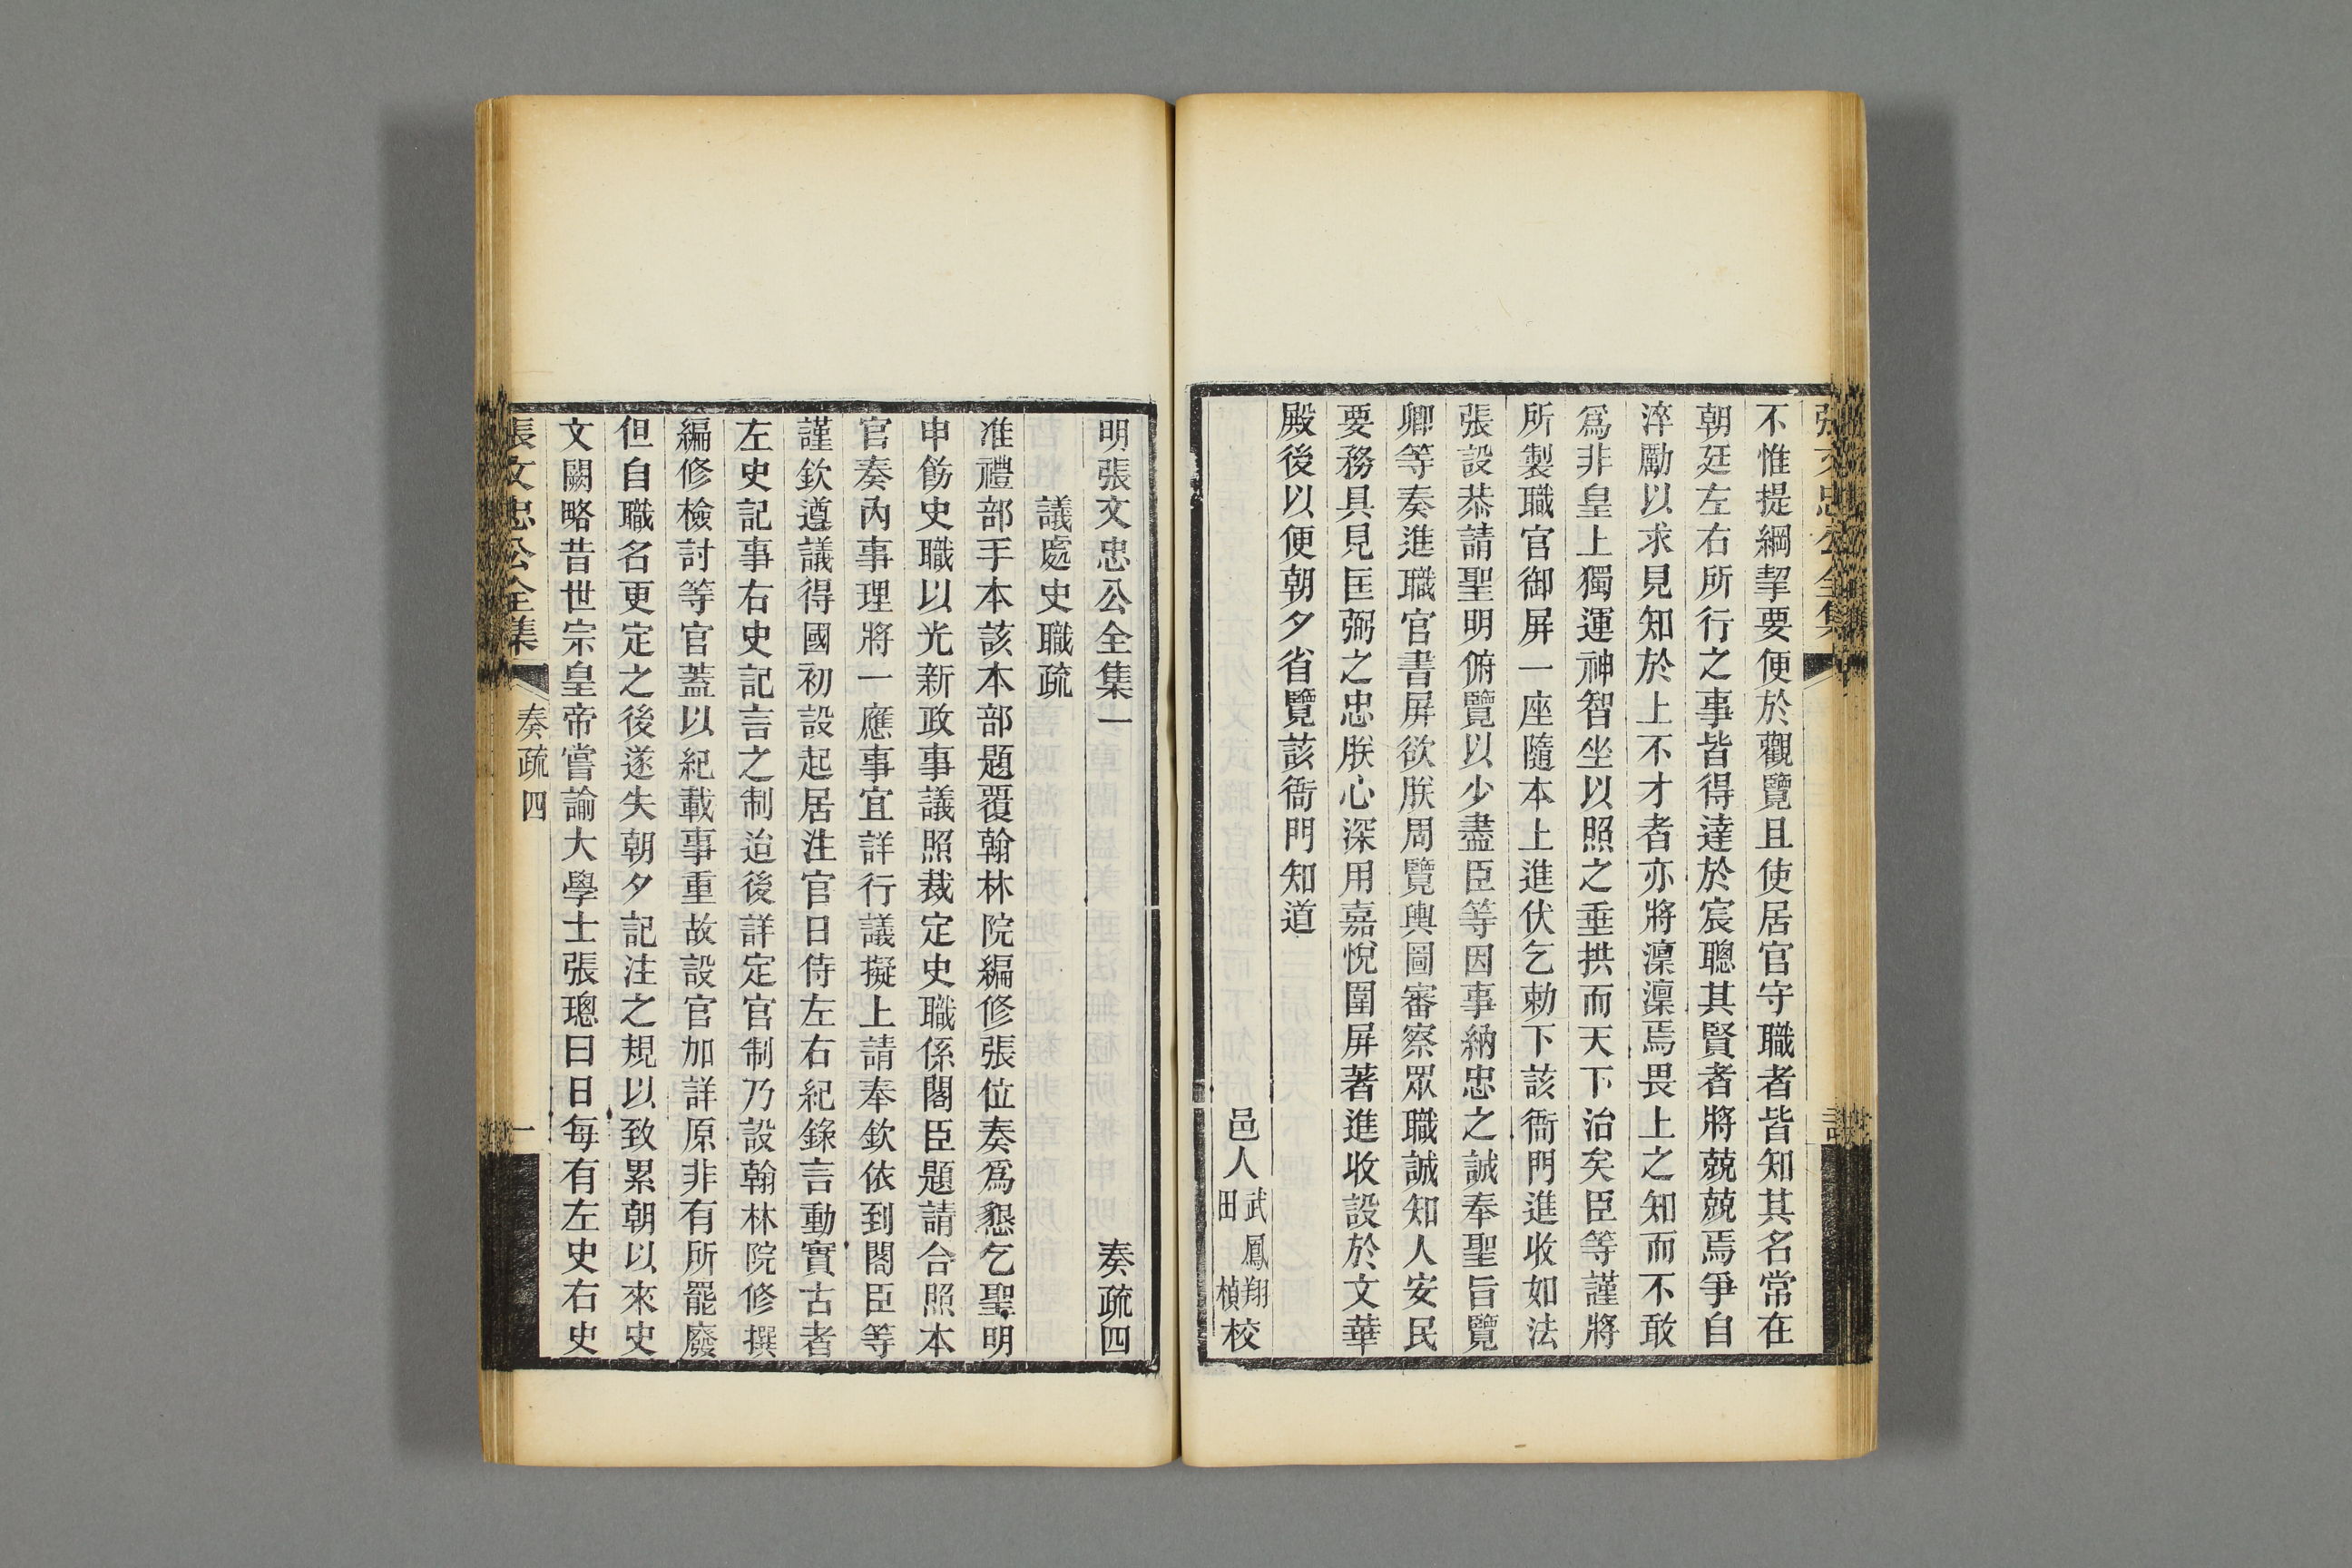 張文忠公全集
不惟提綱挈要便於觀覽且使居官守職者皆知其名常在
朝廷左右所行之事皆得達於宸聰其賢者將兢兢焉爭自
淬勵以求見知於上不才者亦將凜凜焉畏上之知而不敢
爲非皇上獨運神智坐以照之垂拱而天下治矣臣等謹將
所製職官御屏一座隨本上進伏乞勅下該衙門進收如法
張設恭請聖明俯覽以少盡臣等因事納忠之誠奉聖旨覽
卿等奏進職官書屏欲朕周覽輿圖審察眾職誠知人安民
要務具見匡弼之忠朕心深用嘉悅圍屏著進收設於文華
殿後以便朝夕省覽該衙門知道
邑人武鳳翔田楨校
明張文忠公全集一 奏疏四
議處史職疏
准禮部手本該本部題覆翰林院編修張位奏爲懇乞聖明
申飭史職以光新政事議照裁定史職係閣臣題請合照本
官奏內事理將一應事宜詳行議擬上請奉欽依到閣臣等
謹欽遵議得國初設起居注官日侍左右紀錄言動實古者
左史記事右史記言之制迨後詳定官制乃設翰林院修撰
編修檢討等官蓋以紀載事重故設官加詳原非有所罷廢
但自職名更定之後遂失朝夕記注之規以致累朝以來史
文闕略昔世宗皇帝嘗諭大學士張璁曰日每有左史右史
張文忠公全集 奏疏四 一